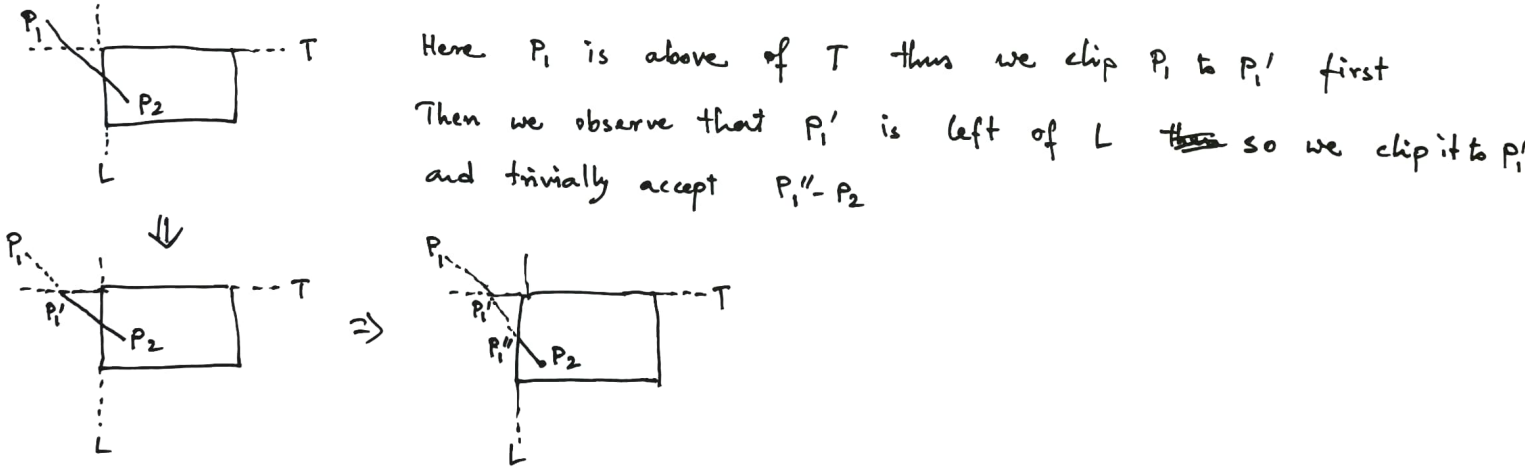 P₁
T
P₂
L
Here P₁ is above of T thus we clip P₁ to P₁' first
Then we observe that P₁' is left of L so we clip it to P₁'
and trivially accept P₁''- P₂
⇓
P₁
T
P₁'
P₂
L
⇒
P₁
T
P₁'
P₁''
P₂
L